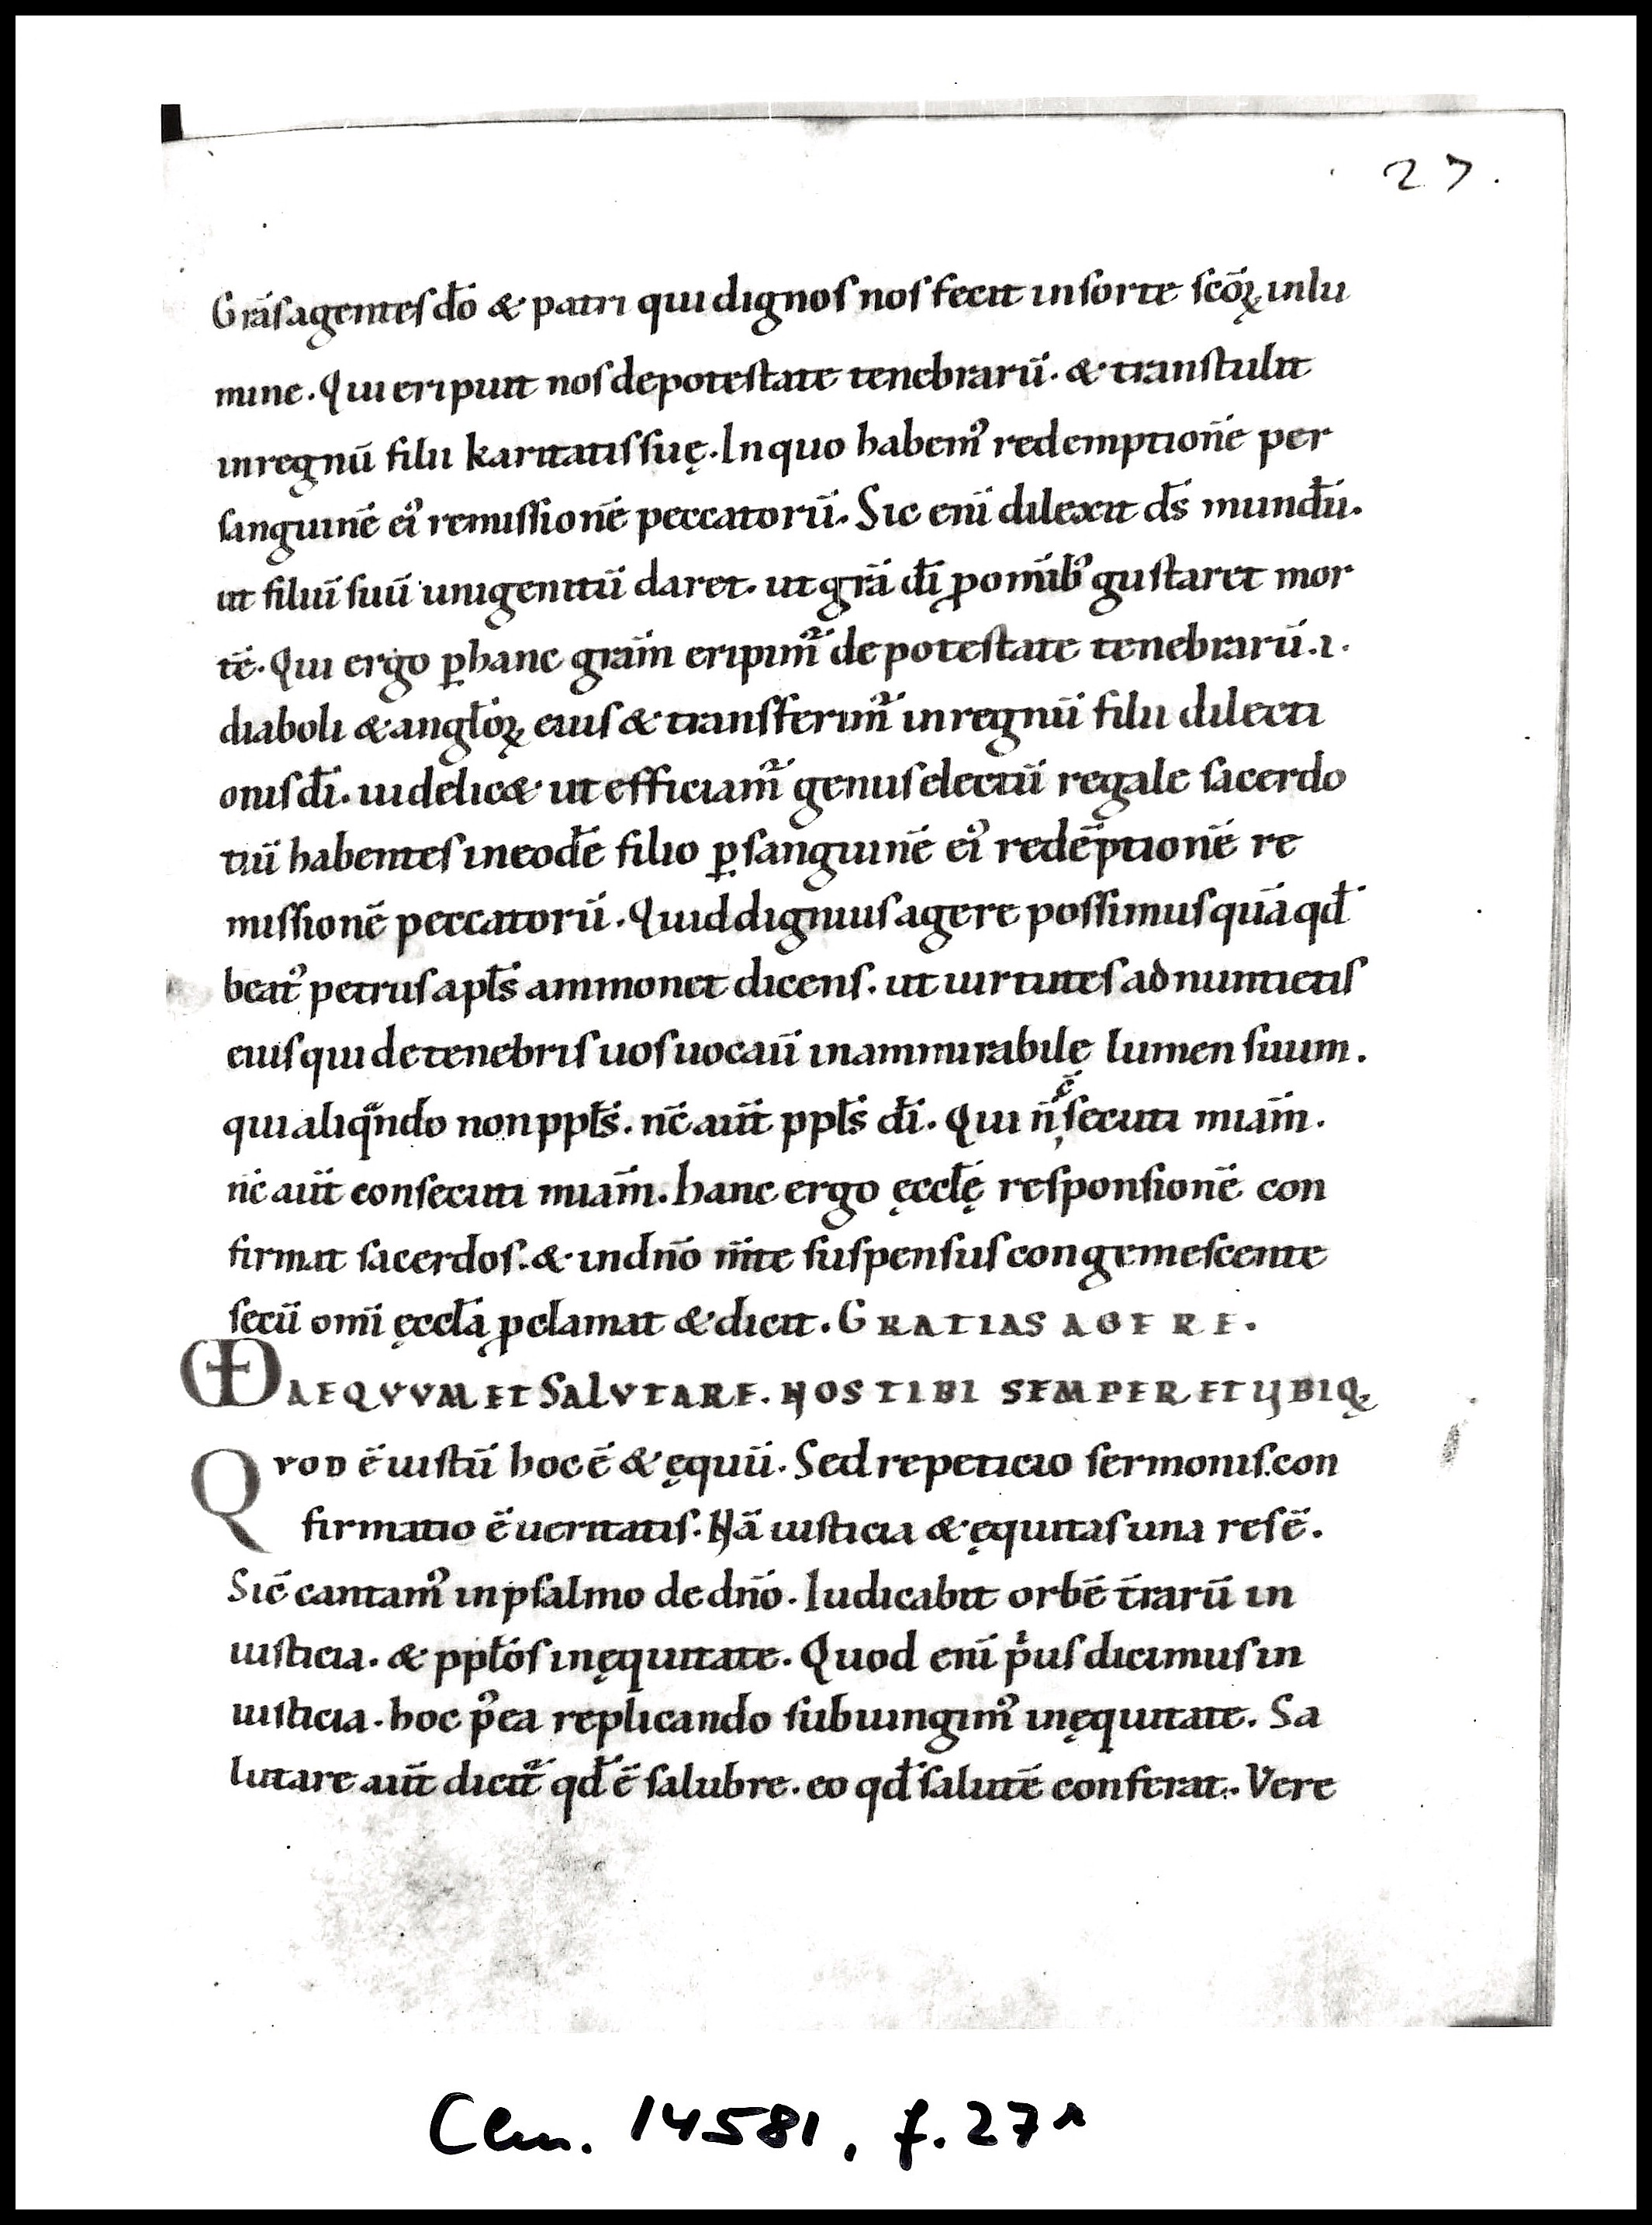 27.
Grāſ agenteſ dō & patri qui dignoſ noſ fecit in ſorte ſcōꝝ in lu
mine. Qui eripuit noſ de poteſtate tenebrarū. & tranſtulit
in regnū filii karitatiſ ſuę. In quo habemꝰ redemptionē per
ſanguinē eiꝰ remiſſionē peccatorū. Sic enī dilexit dſ̄ mundū.
ut filiū ſuū unigenitū daret. ut grā dī ꝓ omībꝰ guſtaret mor
tē. Qui ergo ꝑ hanc grām eripim᷑ de poteſtate tenebrarū .i.
diaboli & anglōꝝ eiuſ & tranſferim᷑ in regnū filii dilecti
oniſ dī. uidelic& ut efficiam᷑ genuſ electū regale ſacerdo
tiū habenteſ in eodē filio ꝑ ſanguinē eiꝰ redēptionē re
miſſionē peccatorū. Quid digniuſ agere poſſimuſ quā qd̄
beatꝰ petruſ aplſ̄ ammonet dicenſ. ut uirtuteſ adnuntietiſ
eiuſ qui de tenebriſ uoſ uocauī in ammirabilę lumen ſuum.
qui aliqͣndo non pplſ̄. nc̄ aūt pplſ̄ dī. Qui n̄ ſecuti miām.
nc̄ aūt conſecuti miām. hanc ergo ęcclę̄ reſponſionē con
firmat ſacerdoſ. & in dnō m̄te ſuſpenſuſ congemeſcente
ſecū omī ęcclā ꝓclamat & dicit. GRATIAS AGERE.
UD AEQVVM ET SALVTARE. NOS TIBI SEMPER ET UBIQꝫ
QVOD ē iuſtū hoc ē & ęquū. Sed repeticio ſermoniſ con
firmatio ē ueritatiſ. Nā iuſticia & ęquitaſ una reſ ē.
Sic̄ cantamꝰ in pſalmo de dnō. Iudicabit orbē t̄rarū in
iuſticia. & pplōſ in ęquitate. Quod enī pͥuſ dicimuſ in
iuſticia. hoc pꝰea replicando ſubiungimꝰ in ęquitate. Sa
lutare aūt dicit᷑ qd̄ ē ſalubre. eo qd̄ ſalutē conferat. Vere
Clm. 14581, f. 27r